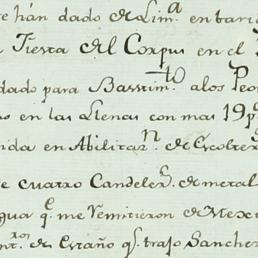 e hán dado de Lim.ª en bari
Fiesta del Corpus en el
dado para Bastim.to a los Peo
s en las Llenas con mas 19 p
nda en Abilitaz.n de Escober
e cuatro Candeler.s de metal
gua q.e me remitieron de Mex
nt.ron de Estaño q.e trajo Sanchez